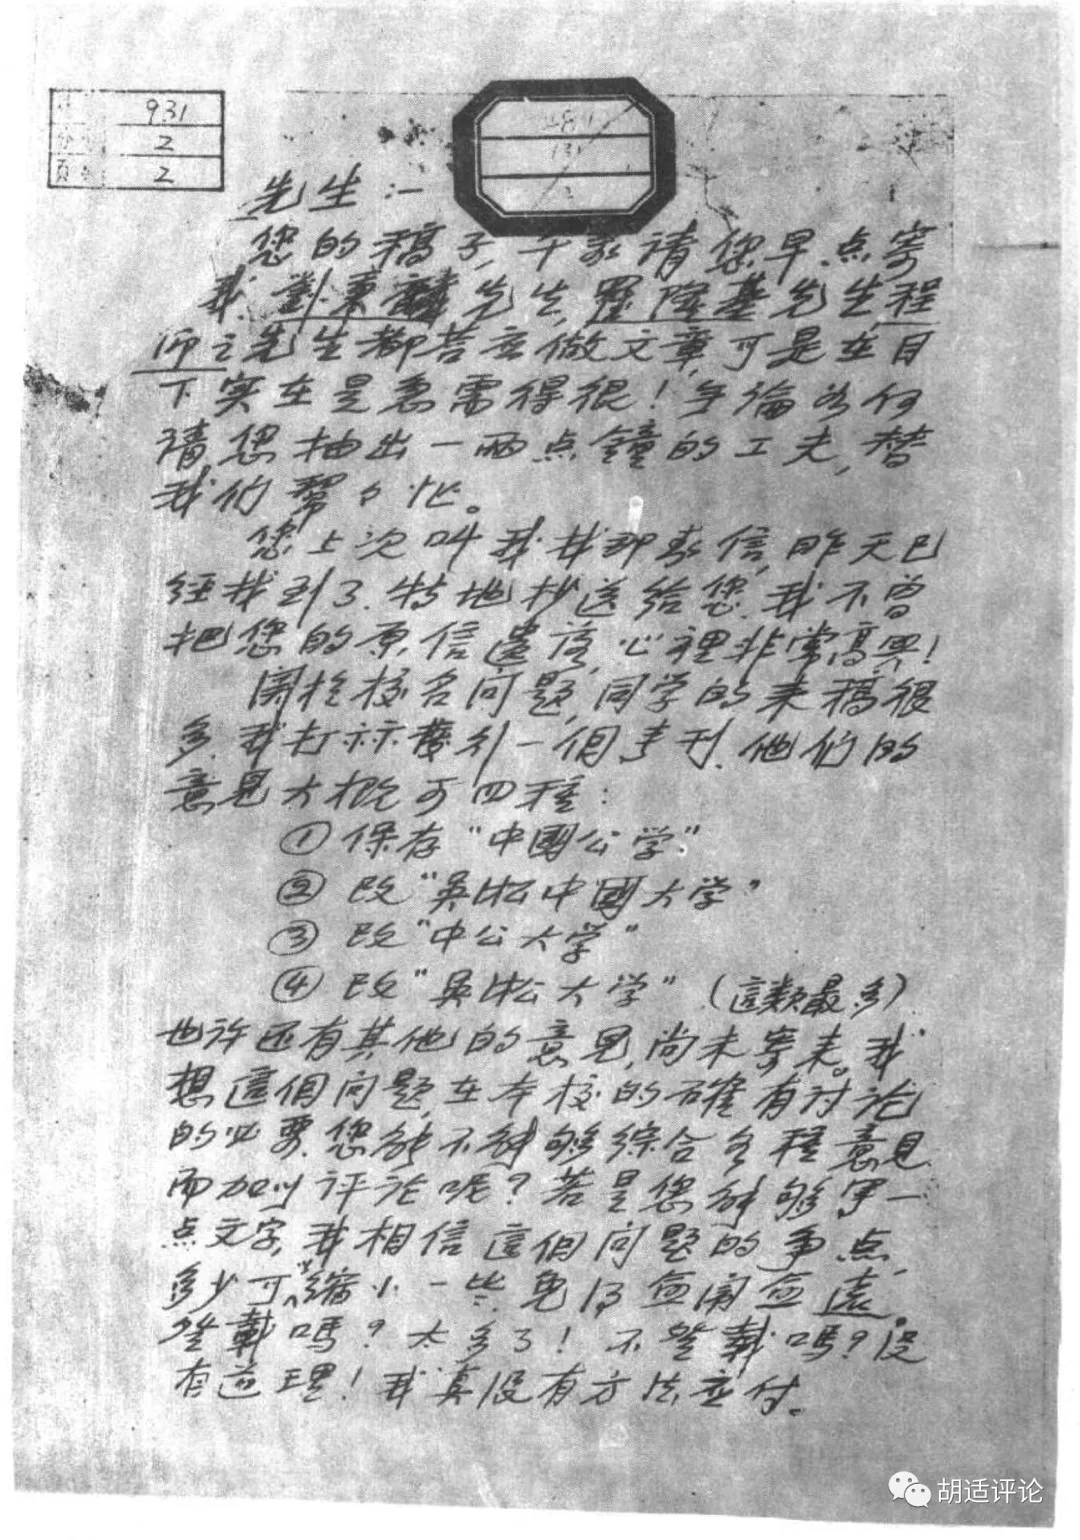 931
2
2
先生：—
您的稿子，千萬請您早点寄
我.劉秉麟先生，羅隆基先生，程
沂之先生都荅应做文章，可是在目
下实在是急需得很！無論如何
请您抽出一兩点鐘的工夫，替
我们幫幫忙。
您上次叫我找那封信，昨天已
经找到了.特地抄送给您.我不曾
把您的原信遺落，心裡非常高興！
関於校名问题，同学的来稿很
多.我打祘發刋一個专刊.他们的
意見大概可四種：
①保存“中國公学”
②改“吳淞中國大学”
③改“中公大学”
④改“吳淞大学”（這類最多）
也许还有其他的意見，尚未寄来。我
想這個问题，在本校的確有讨论
的必要.您能不能够綜合各種意見
而加以评论呢？若是您能够寫一
点文字，我相信這個问题的争点，
多少可以縮小一些，免得愈闹愈遠。
登載嗎？太多了！不登載嗎？没
有道理！我真没有方法应付。
胡适评论